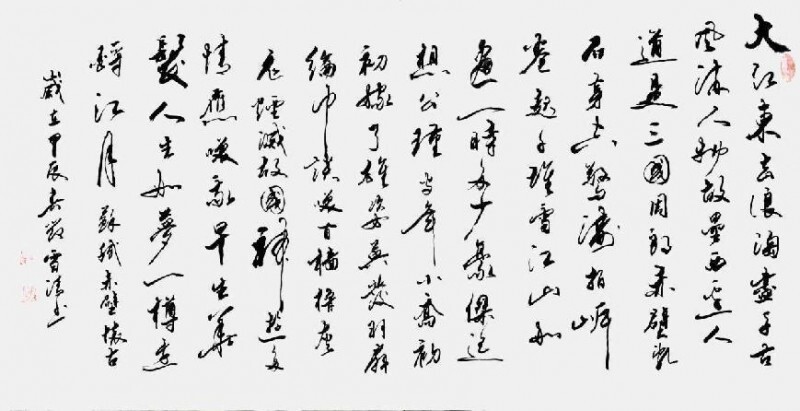 大江東去浪淘盡千古
風流人物故壘西邊人
道是三國周郎赤壁乱
石穿空驚濤拍岸
卷起千堆雪江山如
畫一時多少豪傑遥
想公瑾當年小喬初
初嫁了雄姿英發羽扇
綸巾談笑間檣櫓灰
飛煙滅故國神遊多
情應笑我早生華
髮人生如夢一樽還
酹江月 蘇軾赤壁懷古
歲在甲辰